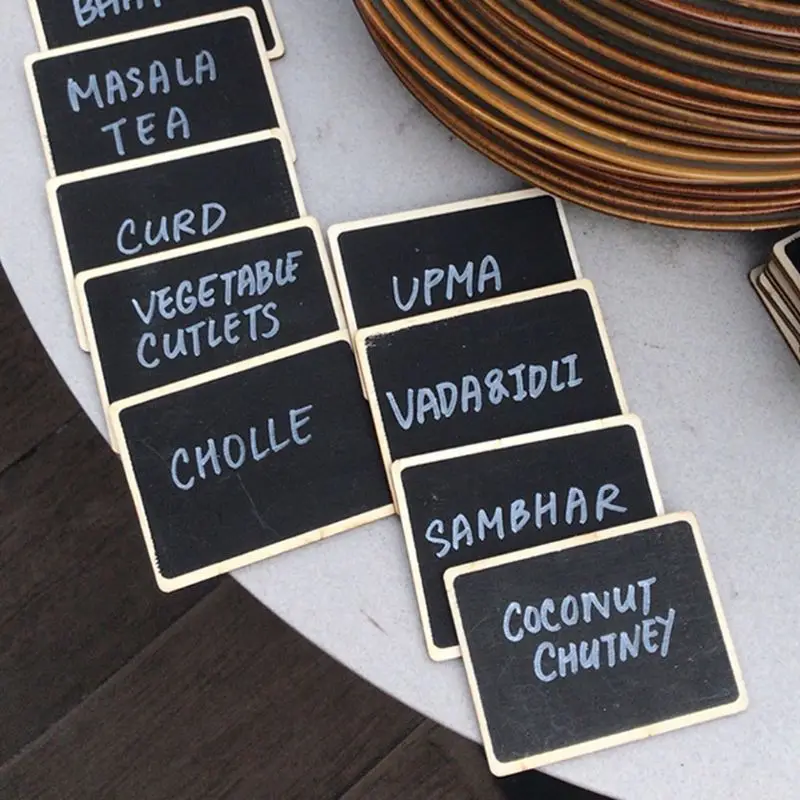 MASALA
TEA
CURD
VEGETABLE
CUTLETS
CHOLLE
UPMA
VADA&IDLI
SAMBHAR
COCONUT
CHUTNEY